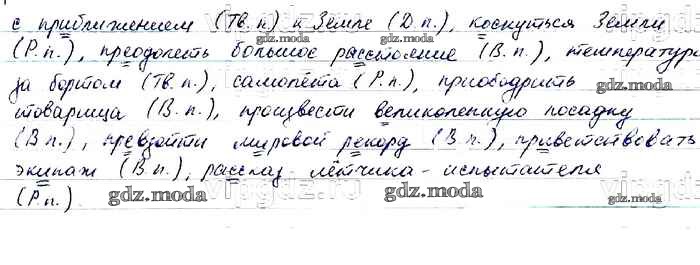 с приближением (Тв. п.) к Земле (Д. п.), коснуться Земли
(Р. п.), преодолеть большое расстояние (В. п.), температура
за бортом (Тв. п.), самолёта (Р. п.), приободрить
товарища (В. п.), произвести великолепную посадку
(В п.), превзойти мировой рекорд (В п.), приветствовать
экипаж (В п.), рассказ лётчика - испытателя
(Р п.)
gdz.moda
gdz.moda
gdz.moda
gdz.moda
gdz.moda
gdz.moda
gdz.moda